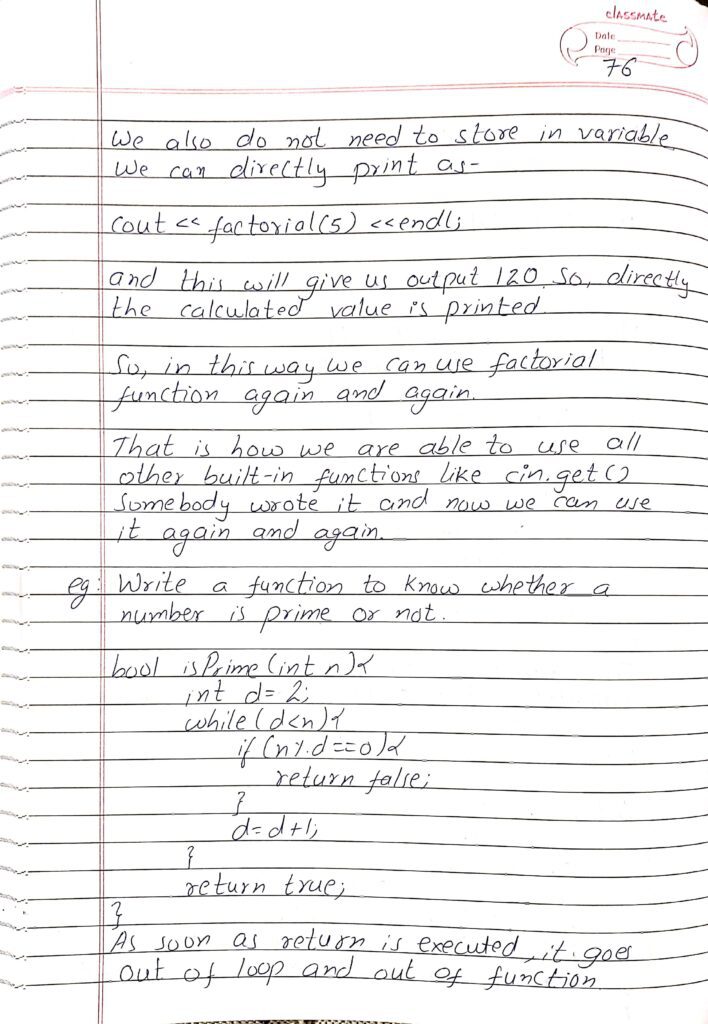 classmate
Date
Page
76
We also do not need to store in variable.
We can directly print as-
cout << factorial(5) <<endl;
and this will give us output 120. So, directly
the calculated value is printed.
So, in this way we can use factorial
function again and again.
That is how we are able to use all
other built-in functions like cin.get()
Somebody wrote it and now we can use
it again and again.
eg: Write a function to know whether a
number is prime or not.
bool isPrime(int n){
int d= 2;
while(d<n){
if (n%d==0){
return false;
}
d=d+1;
}
return true;
}
As soon as return is executed, it goes
out of loop and out of function